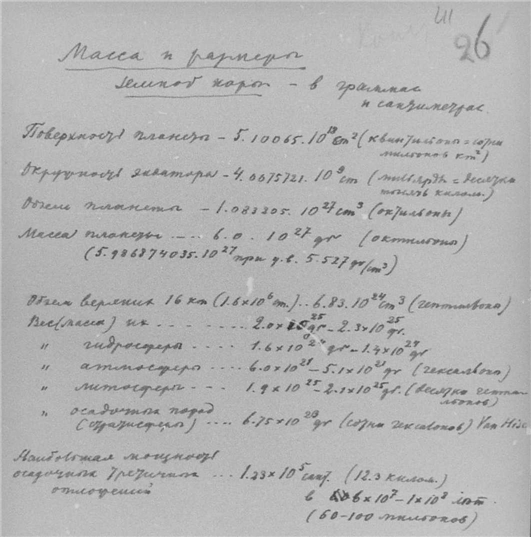 26
Масса и размеры
земной коры – в граммах
и сантиметрах.
Поверхность планеты – 5.10065.10¹⁸cm² (квинтильоны = сотни
мильонов km²)
Окружность экватора – 4.0075721.10⁹cm (мильярды = десятки
тысяч килом.)
Объем планеты – 1.083205.10²⁷cm³ (октильоны)
Масса планеты .... 6.0.10²⁷gr (октильоны)
(5.986874035.10²⁷ при у.в. 5.527 gr/cm³)
Объем верхних 16 км (1.6×10⁶cm.)..6.83.10²⁴cm³ (септильоны)
Вес(масса) их ........ 2.0×10²⁵gr – 2.3×10²⁵gr.
„ гидросферы .... 1.6×10²⁴gr – 1.4×10²⁴gr
„ атмосферы .... 6.0×10²¹ – 5.1×10²¹gr (гексальоны)
„ литосферы .... 1.9×10²⁵ – 2.1×10²⁵gr. (десятки септи-
льонов)
„ осадочных пород
(стратисферы) .... 6.75×10²³gr (сотни гексальонов) Van Hise
Наибольшая мощность
осадочных третичных ... 1.23×10⁵ (12.3 килом.)
отложений
в 6×10⁷ – 1×10⁸ лет.
(60-100 мильонов)